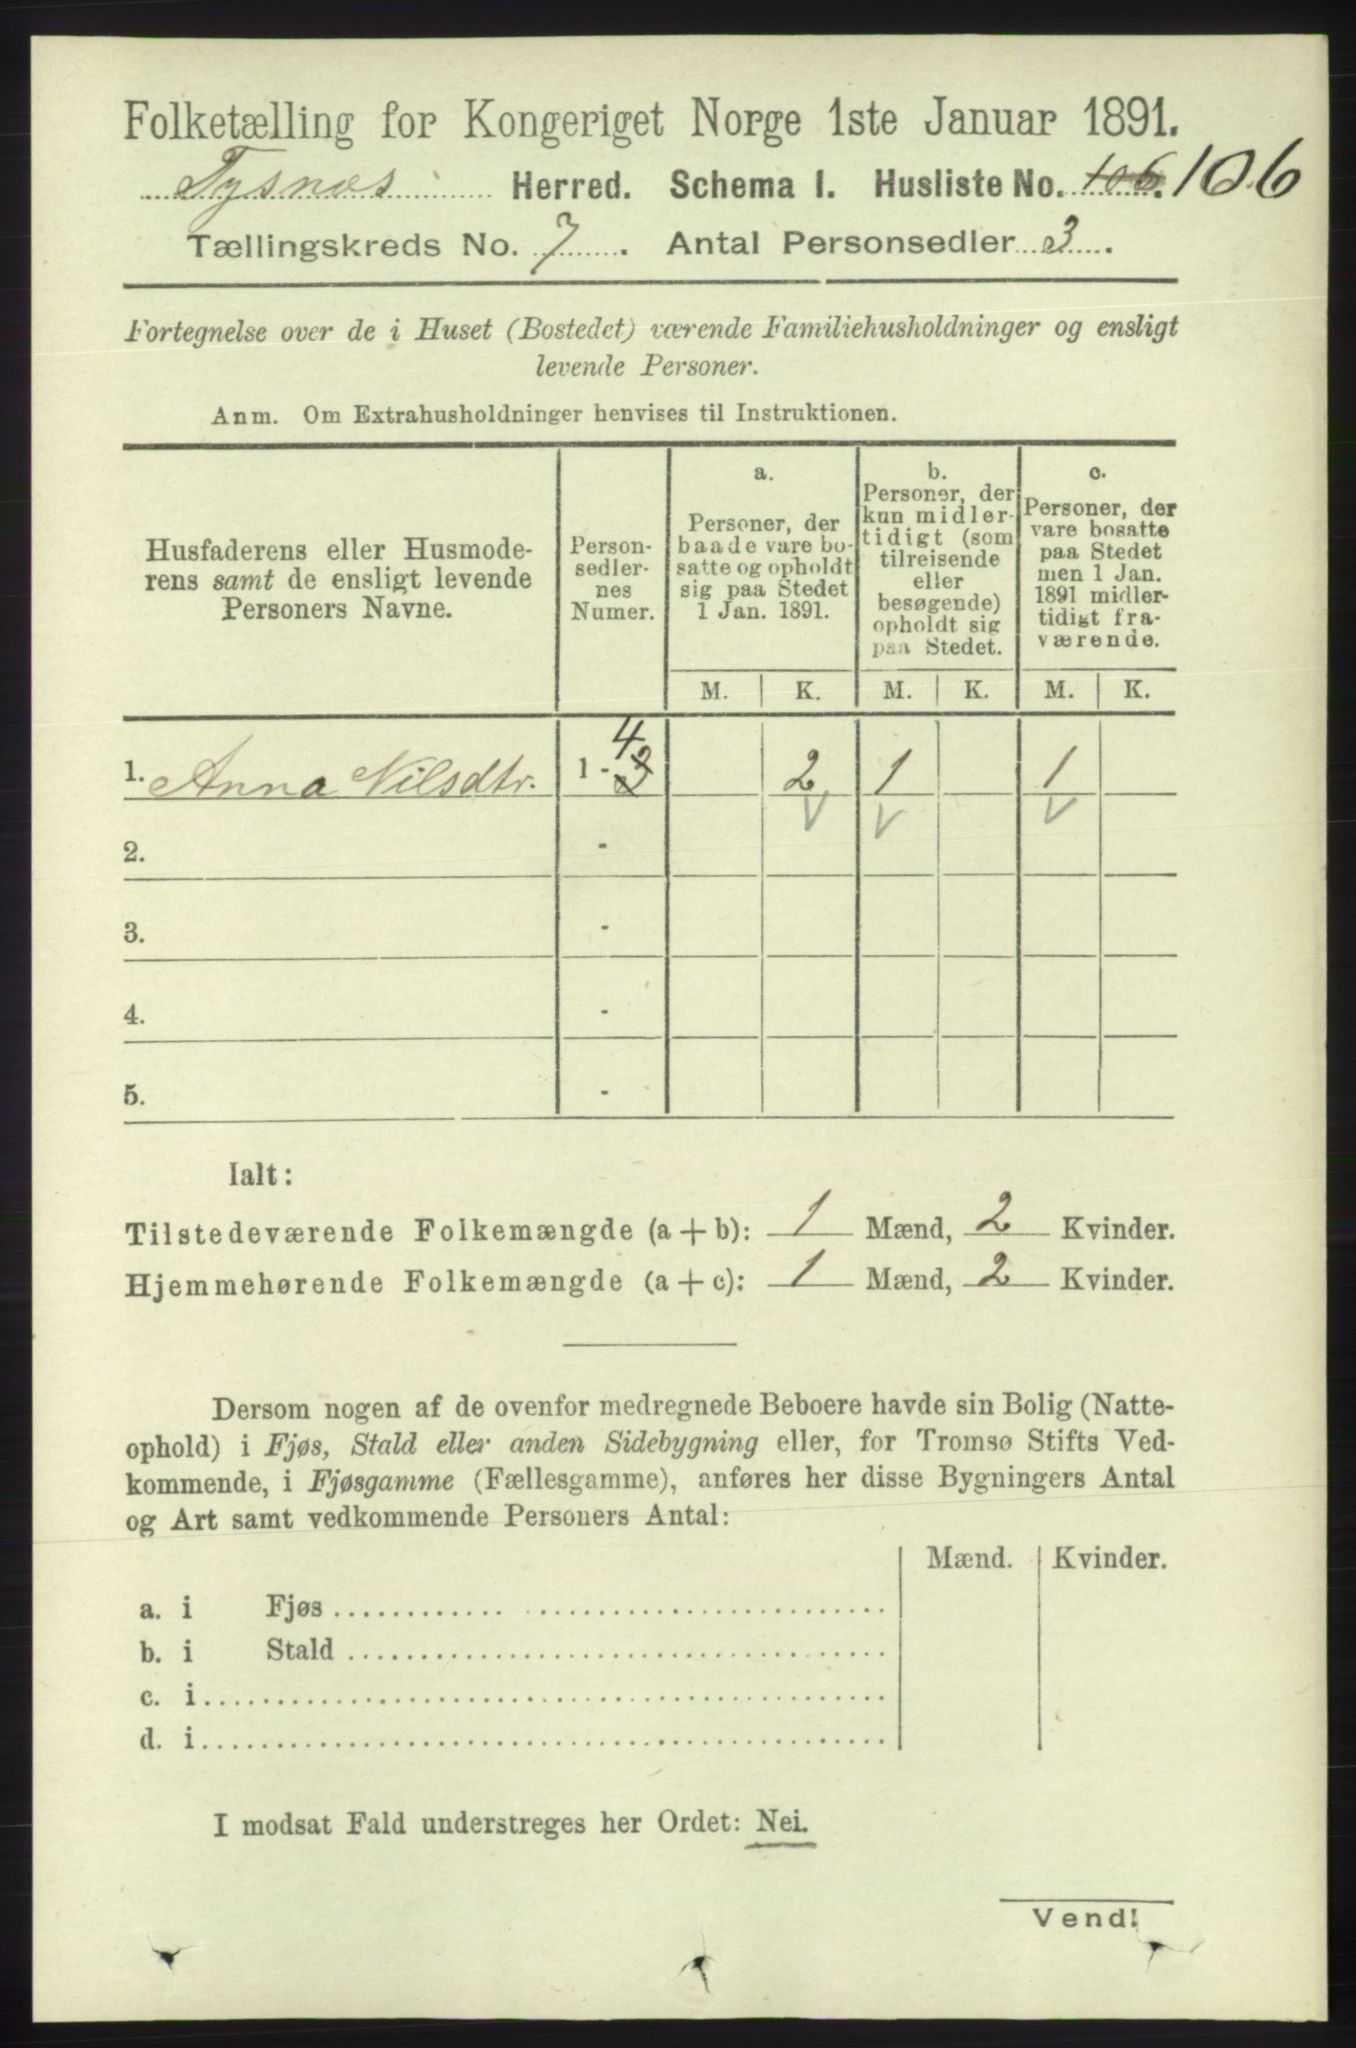 Folketælling for Kongeriget Norge 1ste Januar 1891.
Tysnæs Herred. Schema I. Husliste No. 106. 106
Tællingskreds No. 7. Antal Personsedler 3.
Fortegnelse over de i Huset (Bostedet) værende Familiehusholdninger og ensligt
levende Personer.
Anm. Om Extrahusholdninger henvises til Instruktionen.
Husfaderens eller Husmode-
rens samt de ensligt levende
Personers Navne.
Person-
sedler-
nes
Numer.
a.
Personer, der
baade vare bo-
satte og opholdt
sig paa Stedet
1 Jan. 1891.
b.
Personer, der
kun midler-
tidigt (som
tilreisende
eller
besøgende)
opholdt sig
paa Stedet.
c.
Personer, der
vare bosatte
paa Stedet
men 1 Jan.
1891 midler-
tidigt fra-
værende.
M. K. M. K. M. K.
4
1. Anna Nilsdtr. 1 - 3 2 1 1
V V V
2. -
3. -
4. -
5. -
Ialt:
Tilstedeværende Folkemængde (a + b): 1 Mænd, 2 Kvinder.
Hjemmehørende Folkemængde (a + c): 1 Mænd, 2 Kvinder.
Dersom nogen af de ovenfor medregnede Beboere havde sin Bolig (Natte-
ophold) i Fjøs, Stald eller anden Sidebygning eller, for Tromsø Stifts Ved-
kommende, i Fjøsgamme (Fællesgamme), anføres her disse Bygningers Antal
og Art samt vedkommende Personers Antal:
Mænd. Kvinder.
a. i Fjøs
b. i Stald
c. i
d. i
I modsat Fald understreges her Ordet: Nei.
Vend!